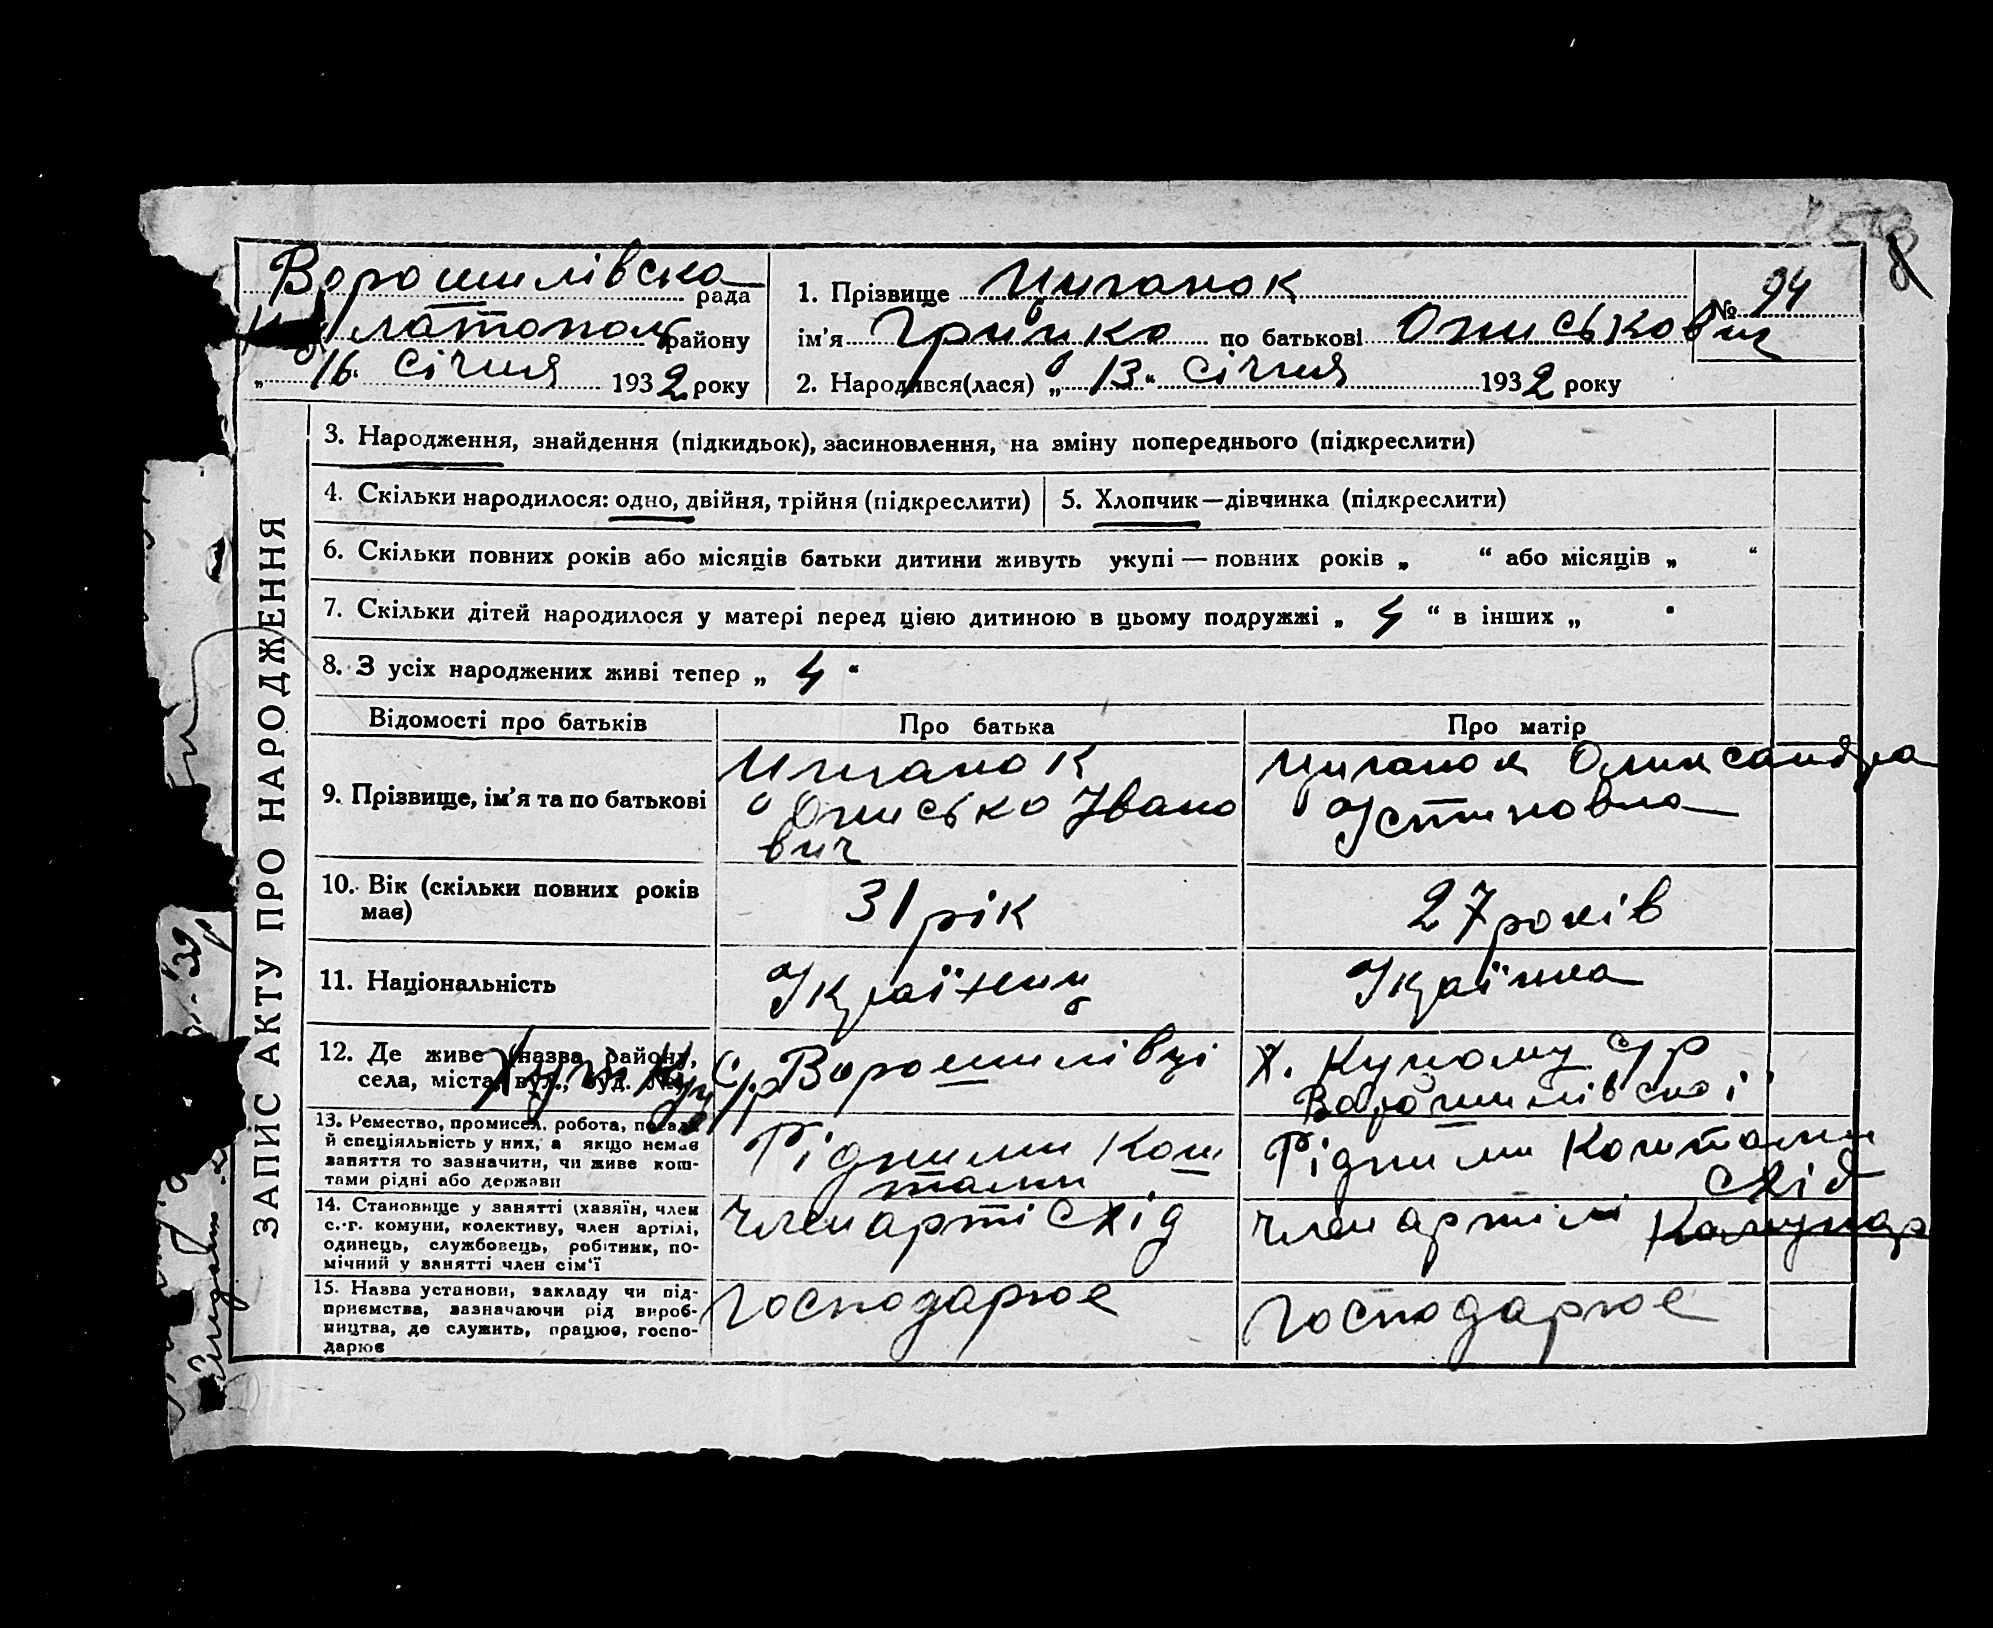 Ворошилівска рада
латопол району
„16“ січня 1932 року
1. Прізвище Циганок
№ 94
ім'я Грицко по батькові Ониськович
2. Народився(лася) „13“ січня 1932 року
ЗАПИС АКТУ ПРО НАРОДЖЕННЯ
3. Народження, знайдення (підкидьок), засиновлення, на зміну попереднього (підкреслити)
4. Скільки народилося: одно, двійня, трійня (підкреслити)
5. Хлопчик—дівчинка (підкреслити)
6. Скільки повних років або місяців батьки дитини живуть укупі — повних років „ “ або місяців „ “
7. Скільки дітей народилося у матері перед цією дитиною в цьому подружжі „ 4 “ в інших „
8. З усіх народжених живі тепер „ 4 “
Відомості про батьків
Про батька
Про матір
9. Прізвище, ім'я та по батькові
Циганок
Онисько Івано
вич
Циганок Олександра
Устиновна
10. Вік (скільки повних років
має)
31 рік
27 років
11. Національність
Українец
Українка
12. Де живе (назва району,
села, міста, вул., буд. №)
С/р Ворошилівці
Х. Куцому с/р
Ворошилівскої
13. Ремество, промисел, робота, посада
й спеціяльність у них, а якщо немає
заняття то зазначити, чи живе кош-
тами рідні або держави
Рідними Кош
тами
Рідними Коштами
14. Становище у занятті (хазяїн, член
с.-г. комуни, колективу, член артілі,
одинець, службовець, робітник, по-
мічний у занятті член сім'ї
член арті Схід
Схід
член артіли Комунар
15. Назва установи, закладу чи під-
приємства, зазначаючи рід вироб-
ництва, де служить, працює, госпо-
дарює
господарює
господарює